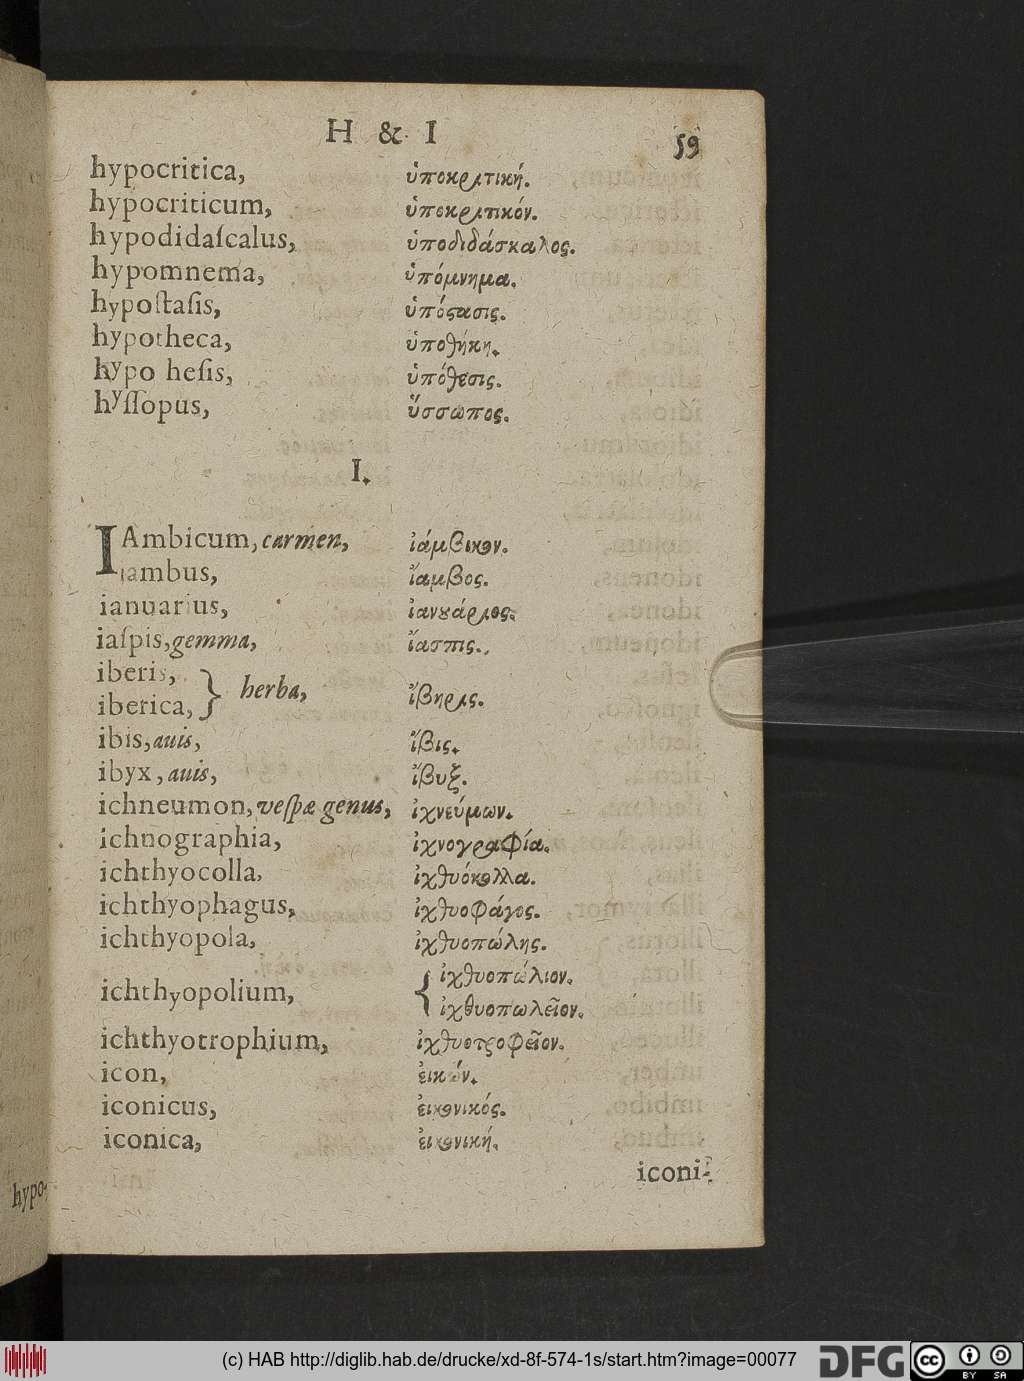 H & I
59
hypocritica, ὑποκριτική.
hypocriticum, ὑποκριτικόν.
hypodidaſcalus, ὑποδιδάσκαλος.
hypomnema, ὑπόμνημα.
hypoſtaſis, ὑπόϛασις.
hypotheca, ὑποθήκη.
hypo heſis, ὑπόθεσις.
hyſſopus, ὕσσωπος.
I.
IAmbicum, carmen, ἰάμβικον.
iambus, ἴαμβος.
ianuarius, ἰανȣάριος.
iaſpis, gemma, ἴασπις.
iberis,
iberica, } herba, ἴβηρις.
ibis, auis, ἴβις.
ibyx, auis, ἴβυξ.
ichneumon, veſpæ genus, ἰχνεύμων.
ichnographia, ἰχνογραφία.
ichthyocolla, ἰχθυόκολλα.
ichthyophagus, ἰχθυοφάγος.
ichthyopola, ἰχθυοπώλης.
ichthyopolium, { ἰχθυοπώλιον.
ἰχθυοπωλεῖον.
ichthyotrophium, ἰχθυοτροφεῖον.
icon, ἐικών.
iconicus, ἐικονικός.
iconica, ἐικονική.
iconi-
hypo-
(c) HAB http://diglib.hab.de/drucke/xd-8f-574-1s/start.htm?image=00077
DFG
cc BY SA